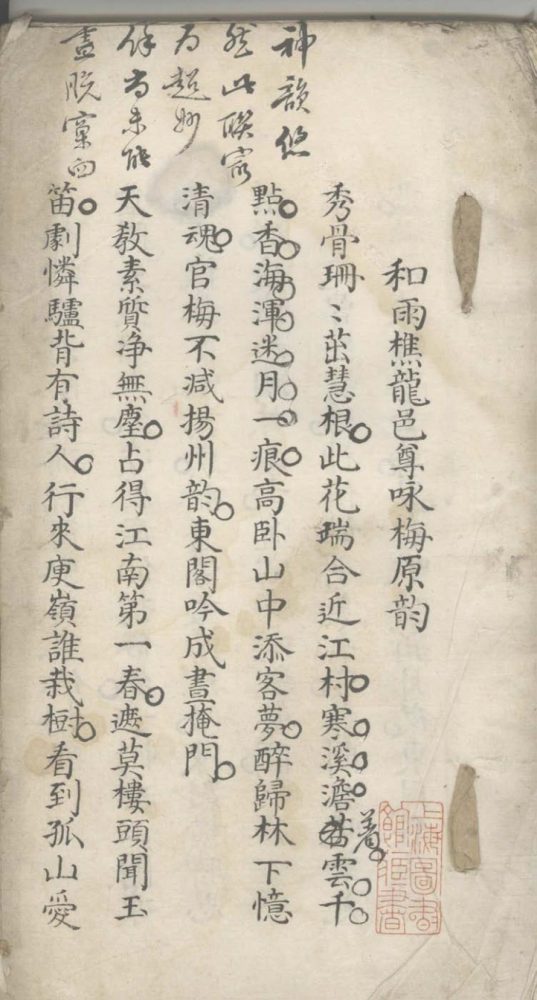 神韻悠
然此联㝡
为超妙
馀尚未能
盡脱窠臼
和雨樵龍邑尊咏梅原韵
秀骨珊〻茁慧根此花瑞合近江村寒溪澹若雲千
着
點香海渾迷月一痕高卧山中添客夢醉歸林下憶
清魂官梅不減揚州韵東閣吟成晝掩門
天教素質净無塵占得江南第一春遮莫樓頭聞玉
笛劇憐驢背有詩人行來庾嶺誰栽樹看到孤山愛
上海圖書
館藏書